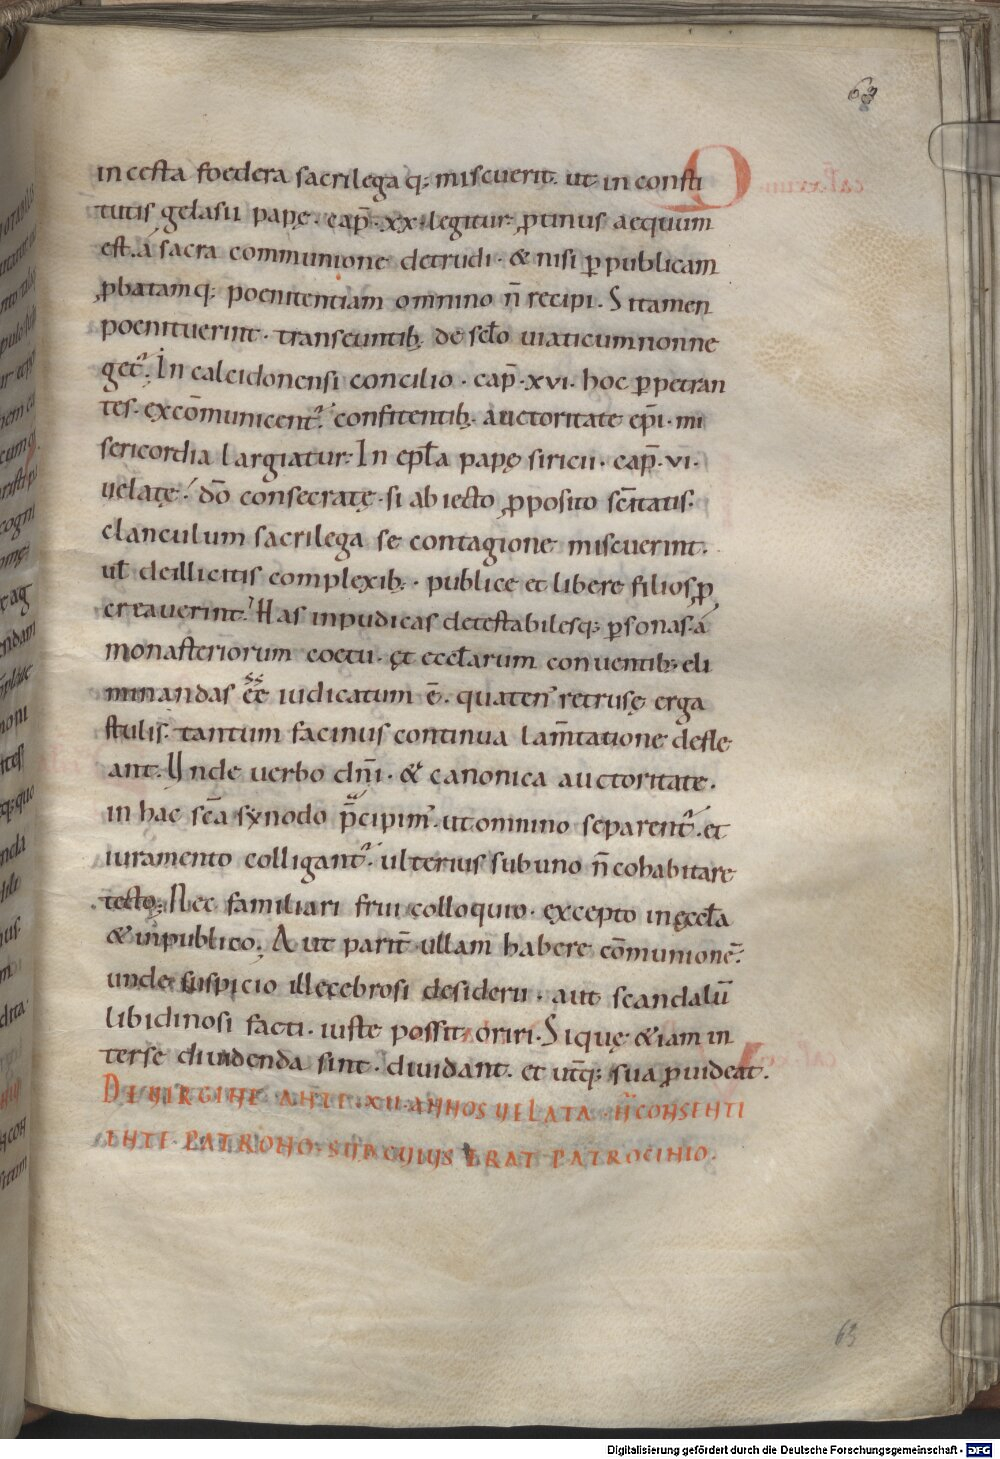 63
incesta foedera sacrilega q; miscuerit. ut in consti
tutis gelasii papę. cap̄. xx. legitur. ꝓtinus aequum
est. á sacra communione detrudi. & nisi ꝑ publicam
ꝓbatamq; poenitentiam omnino n̄ recipi. Si tamen
poenituerint. transeuntib; de sclo uiaticum non ne
get᷑. In calcidonensi concilio. cap̄. xvi. hoc ꝑpetran
tes. excōmunicent᷑. confitentib; auctoritate ep̄i. mi
sericordia largiatur. In epła papę siricii. cap̄. vi.
uelatę. dō consecratę. si abiecto ꝓposito scītatis.
clanculum sacrilega se contagione miscuerint.
uł de illicitis complexib;. publice et libere filios ꝓ
creauerint. Has inpudicas detestabilesq; ꝑsonas. á
monasteriorum coetu. et eccłarum conuentib; eli
minandas eē iudicatum ē. quaten᾿ retrusę erga
stulis. tantum facinus continua lam̄tatione defle
ant. Unde uerbo dn̄i. & canonica auctoritate.
in hac sc̄a synodo p̄cipim᾿. ut omnino separent᷑. et
iuramento colligant᷑. ulterius sub uno n̄ cohabitare
tecto. Nec familiari frui colloquio. excepto in ęccła
& in publico. Aut parit̄ ullam habere cōmunionē.
unde suspicio illecebrosi desiderii. aut scandalū
libidinosi facti. iuste possit oriri. Si quę & iam in
ter se diuidenda sint. diuidant. et ut̄q; sua ꝓuideat.
DE UIRGINE ANTE. XII. ANNOS UELATA. N̄ CONSENTI
ENTE PATRONO. SUB CUIUS ERAT PATROCINIO.
63
Digitalisierung gefördert durch die Deutsche Forschungsgemeinschaft - DFG